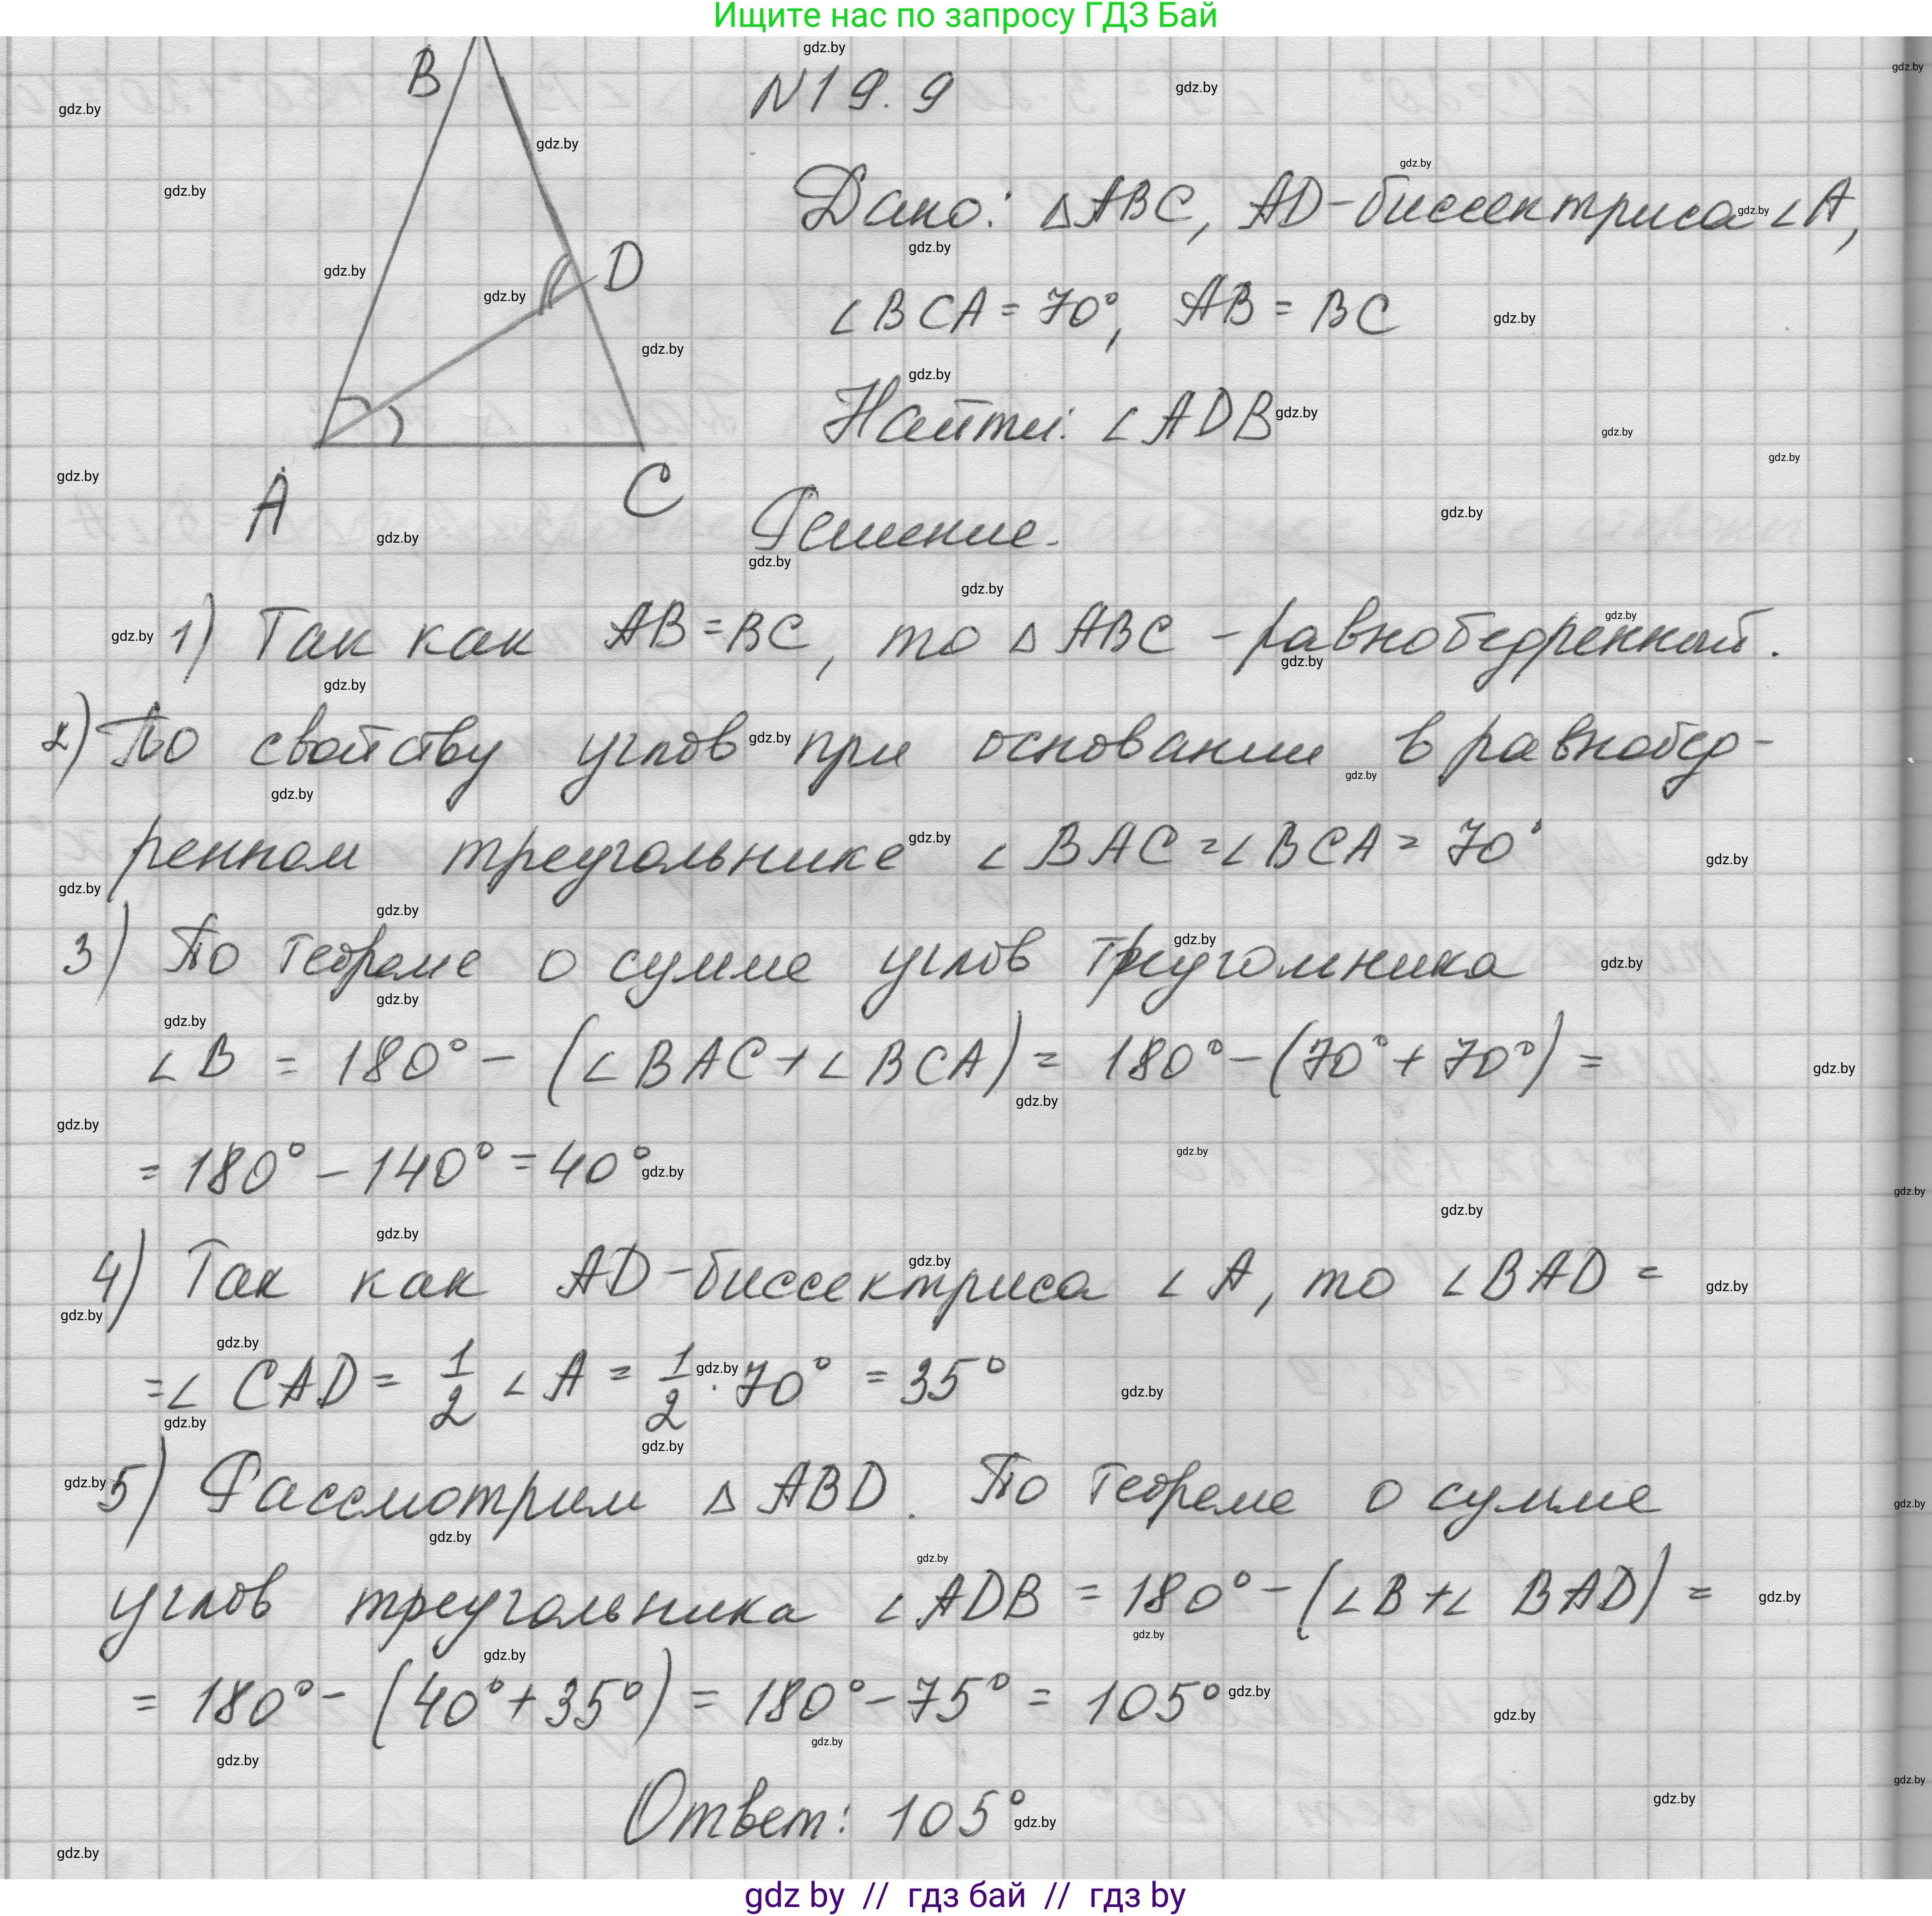 Ищите нас по запросу ГДЗ Бай
B
N19.9
Дано: △ABC, AD-биссектриса ∠A,
D
∠BCA = 70°, AB = BC
Найти: ∠ADB
A C
Решение.
1) Так как AB=BC, то △ABC - равнобедренный.
2) По свойству углов при основании в равнобед-
ренном треугольнике ∠BAC = ∠BCA = 70°
3) По теореме о сумме углов треугольника
∠B = 180° - (∠BAC + ∠BCA) = 180° - (70° + 70°) =
= 180° - 140° = 40°
4) Так как AD-биссектриса ∠A, то ∠BAD =
= ∠CAD = 1/2 ∠A = 1/2 · 70° = 35°
5) Рассмотрим △ABD. По теореме о сумме
углов треугольника ∠ADB = 180° - (∠B + ∠BAD) =
= 180° - (40° + 35°) = 180° - 75° = 105°
Ответ: 105°
gdz by // гдз бай // гдз by